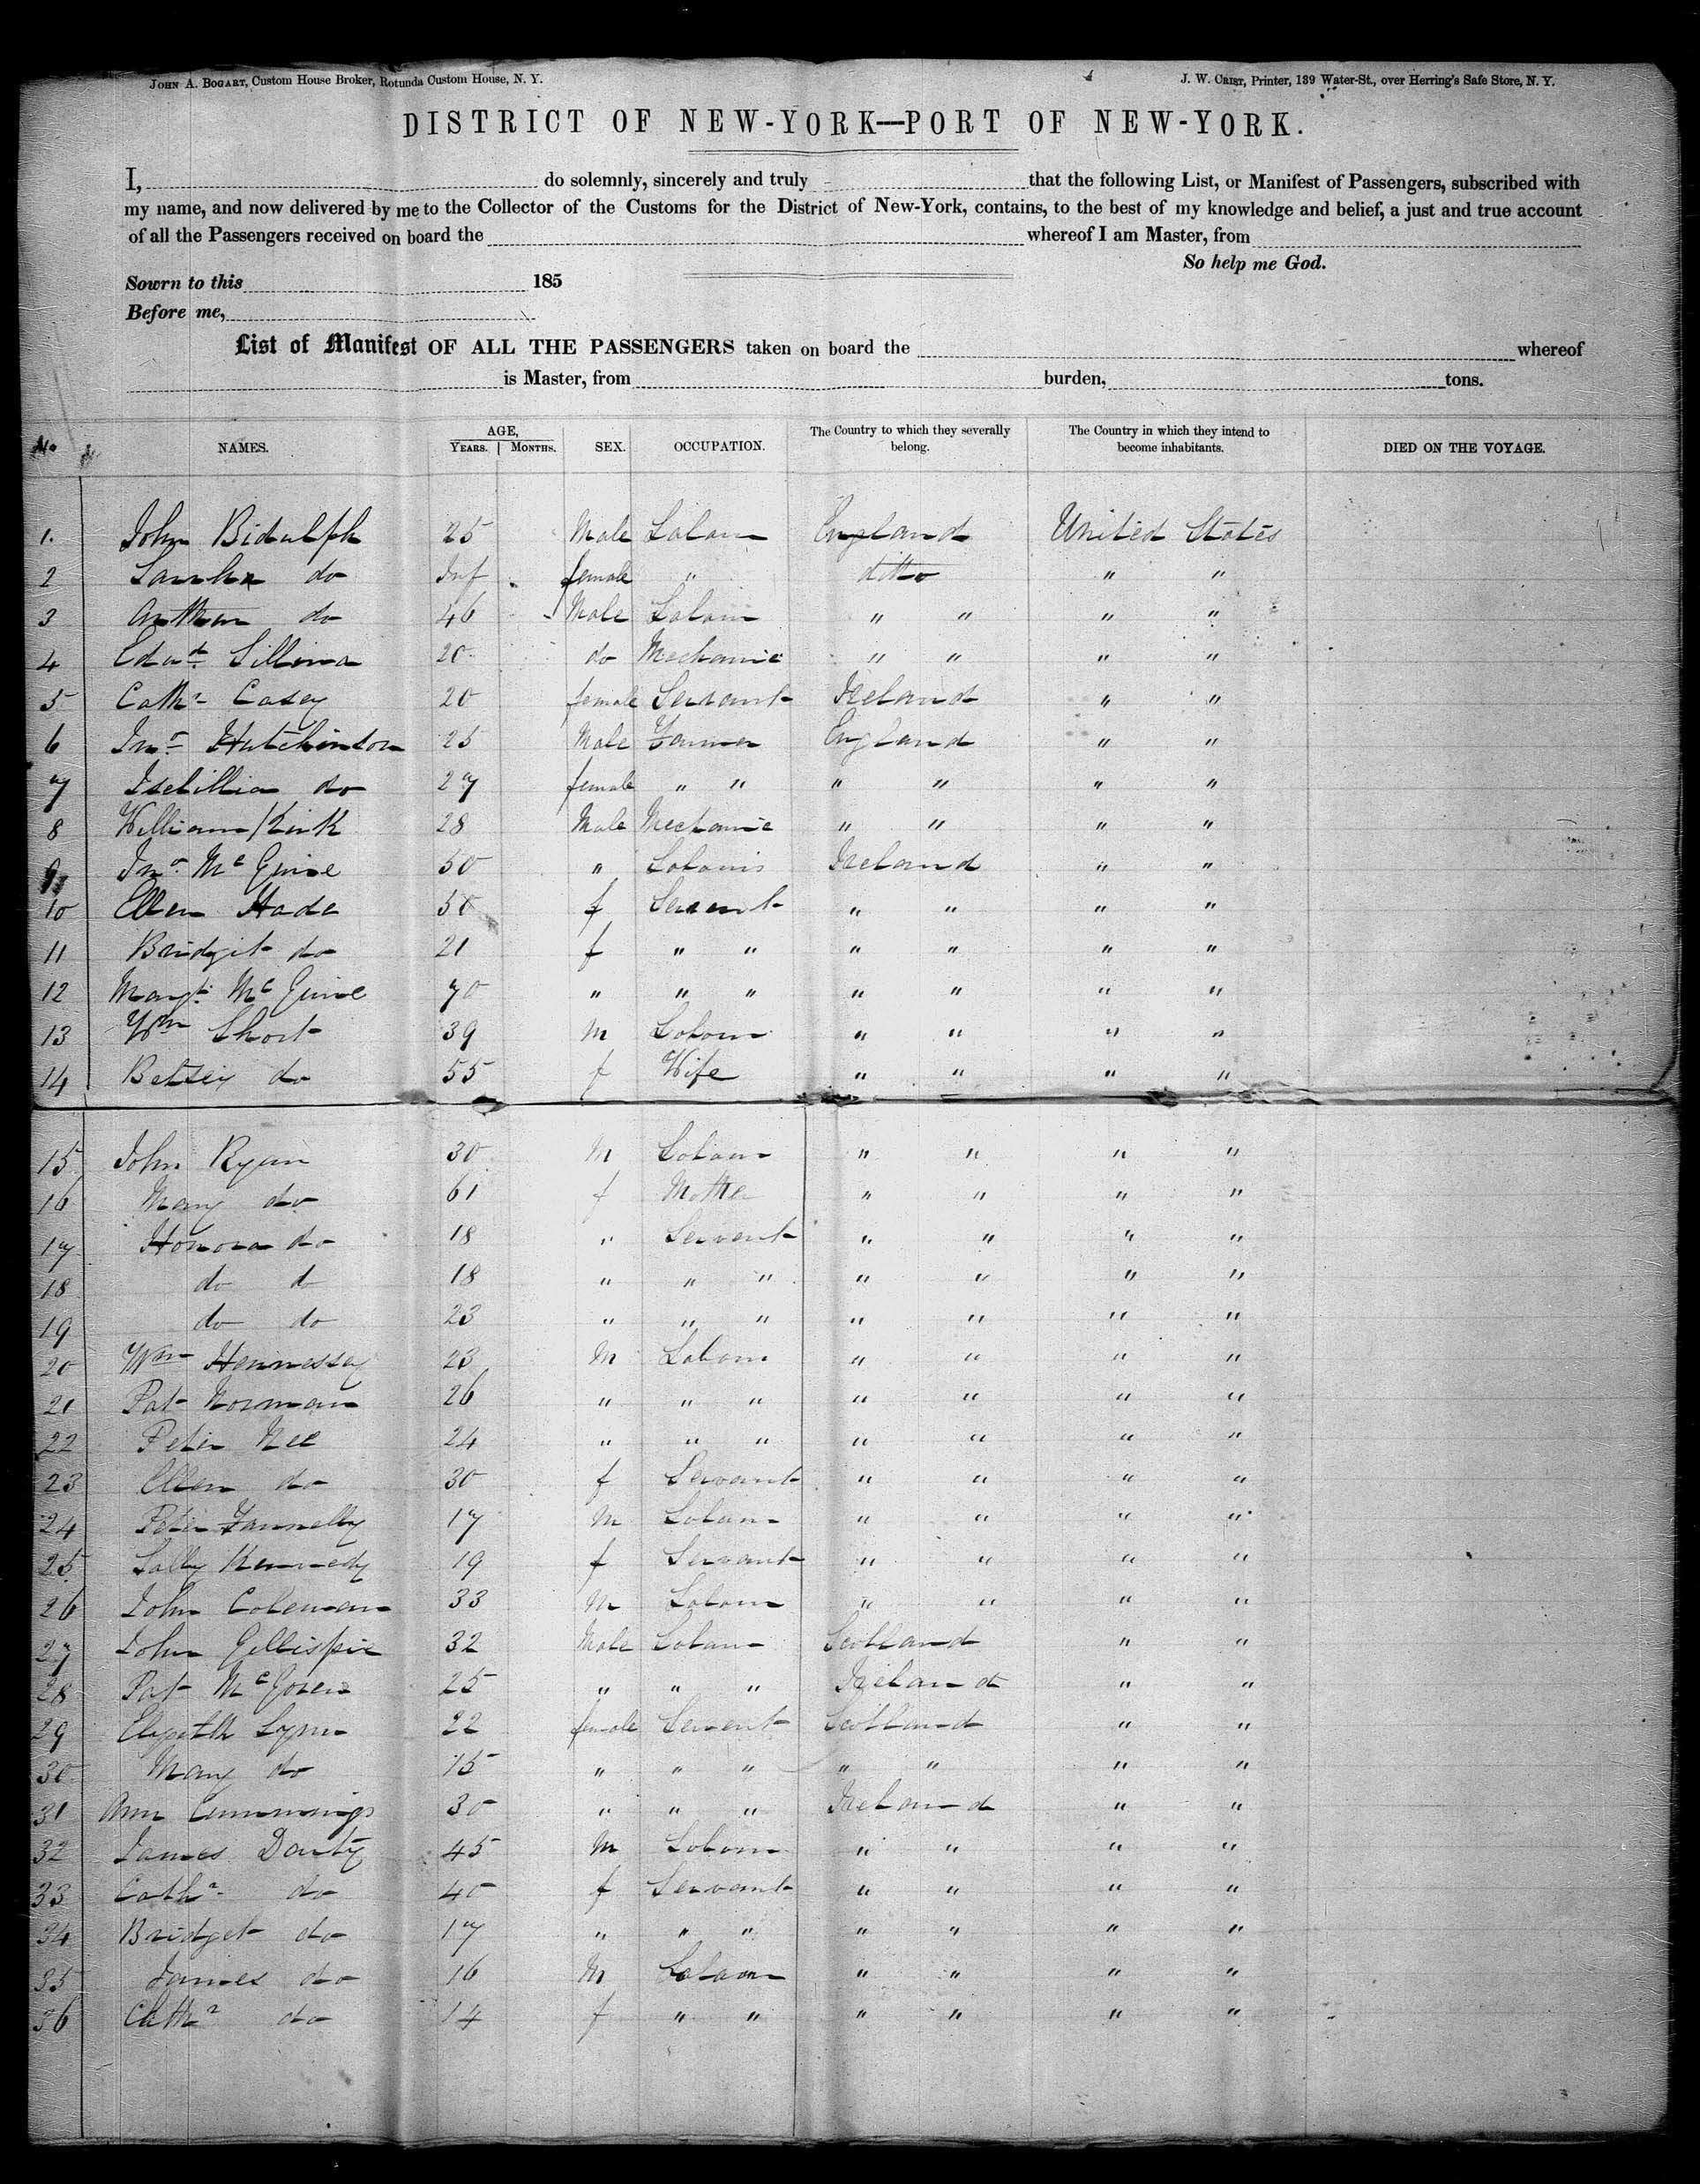 JOHN A. BOGART, Custom House Broker, Rotunda Custom House, N. Y.
J. W. CRIST, Printer, 139 Water-St., over Herring's Safe Store, N. Y.
DISTRICT OF NEW-YORK—PORT OF NEW-YORK.
I, do solemnly, sincerely and truly that the following List, or Manifest of Passengers, subscribed with
my name, and now delivered by me to the Collector of the Customs for the District of New-York, contains, to the best of my knowledge and belief, a just and true account
of all the Passengers received on board the whereof I am Master, from
So help me God.
Sowrn to this 185
Before me,
List of Manifest OF ALL THE PASSENGERS taken on board the whereof
is Master, from burden, tons.
No NAMES. AGE, YEARS. MONTHS. SEX. OCCUPATION. The Country to which they severally belong. The Country in which they intend to become inhabitants. DIED ON THE VOYAGE.
1. John Bidulph 25 Male England United States
2 do Inf female " ditto " "
3 do 46 Male " " " "
4 Edwd 20 do Mechanic " " " "
5 Cathn Casey 20 female Servant Ireland " "
6 Jno Hutchinson 25 Male Farmer England " "
7 do 27 female " " " " " "
8 William Kirk 28 Male Mechanic " " " "
9 Jno Mc Guire 50 " Ireland " "
10 Ellen Hade 50 f Servent " " " "
11 Bridgit do 21 f " " " " " "
12 Margt Mc Guire 70 " " " " " " "
13 Wm Short 39 M " " " "
14 Betsey do 55 f Wife " " " "
15 John Ryan 30 M Labour " " " "
16 Mary do 61 f Mother " " " "
17 Honora do 18 " Servent " " " "
18 do d 18 " " " " " " "
19 do do 23 " " " " " " "
20 Wm Hennessey 23 M Labour " " " "
21 Pat Norman 26 " " " " " " "
22 Peter Nee 24 " " " " " " "
23 Ellen do 30 f Servant " " " "
24 Peter Fannelly 17 M Labour " " " "
25 Sally Kennedy 19 f Servant " " " "
26 John Coleman 33 M Labour " " " "
27 John Gillispie 32 Male Labour Scotland " "
28 Pat 25 " " " Ireland " "
29 Lynn 22 female Servent Scotland " "
30 Mary do 15 " " " " " " "
31 Ann Cummings 30 " " " Ireland " "
32 James Douty 45 M Labour " " " "
33 Cathn do 40 f Servant " " " "
34 Bridget do 17 " " " " " " "
35 James do 16 M Labour " " " "
36 Cathn do 14 f " " " " " "